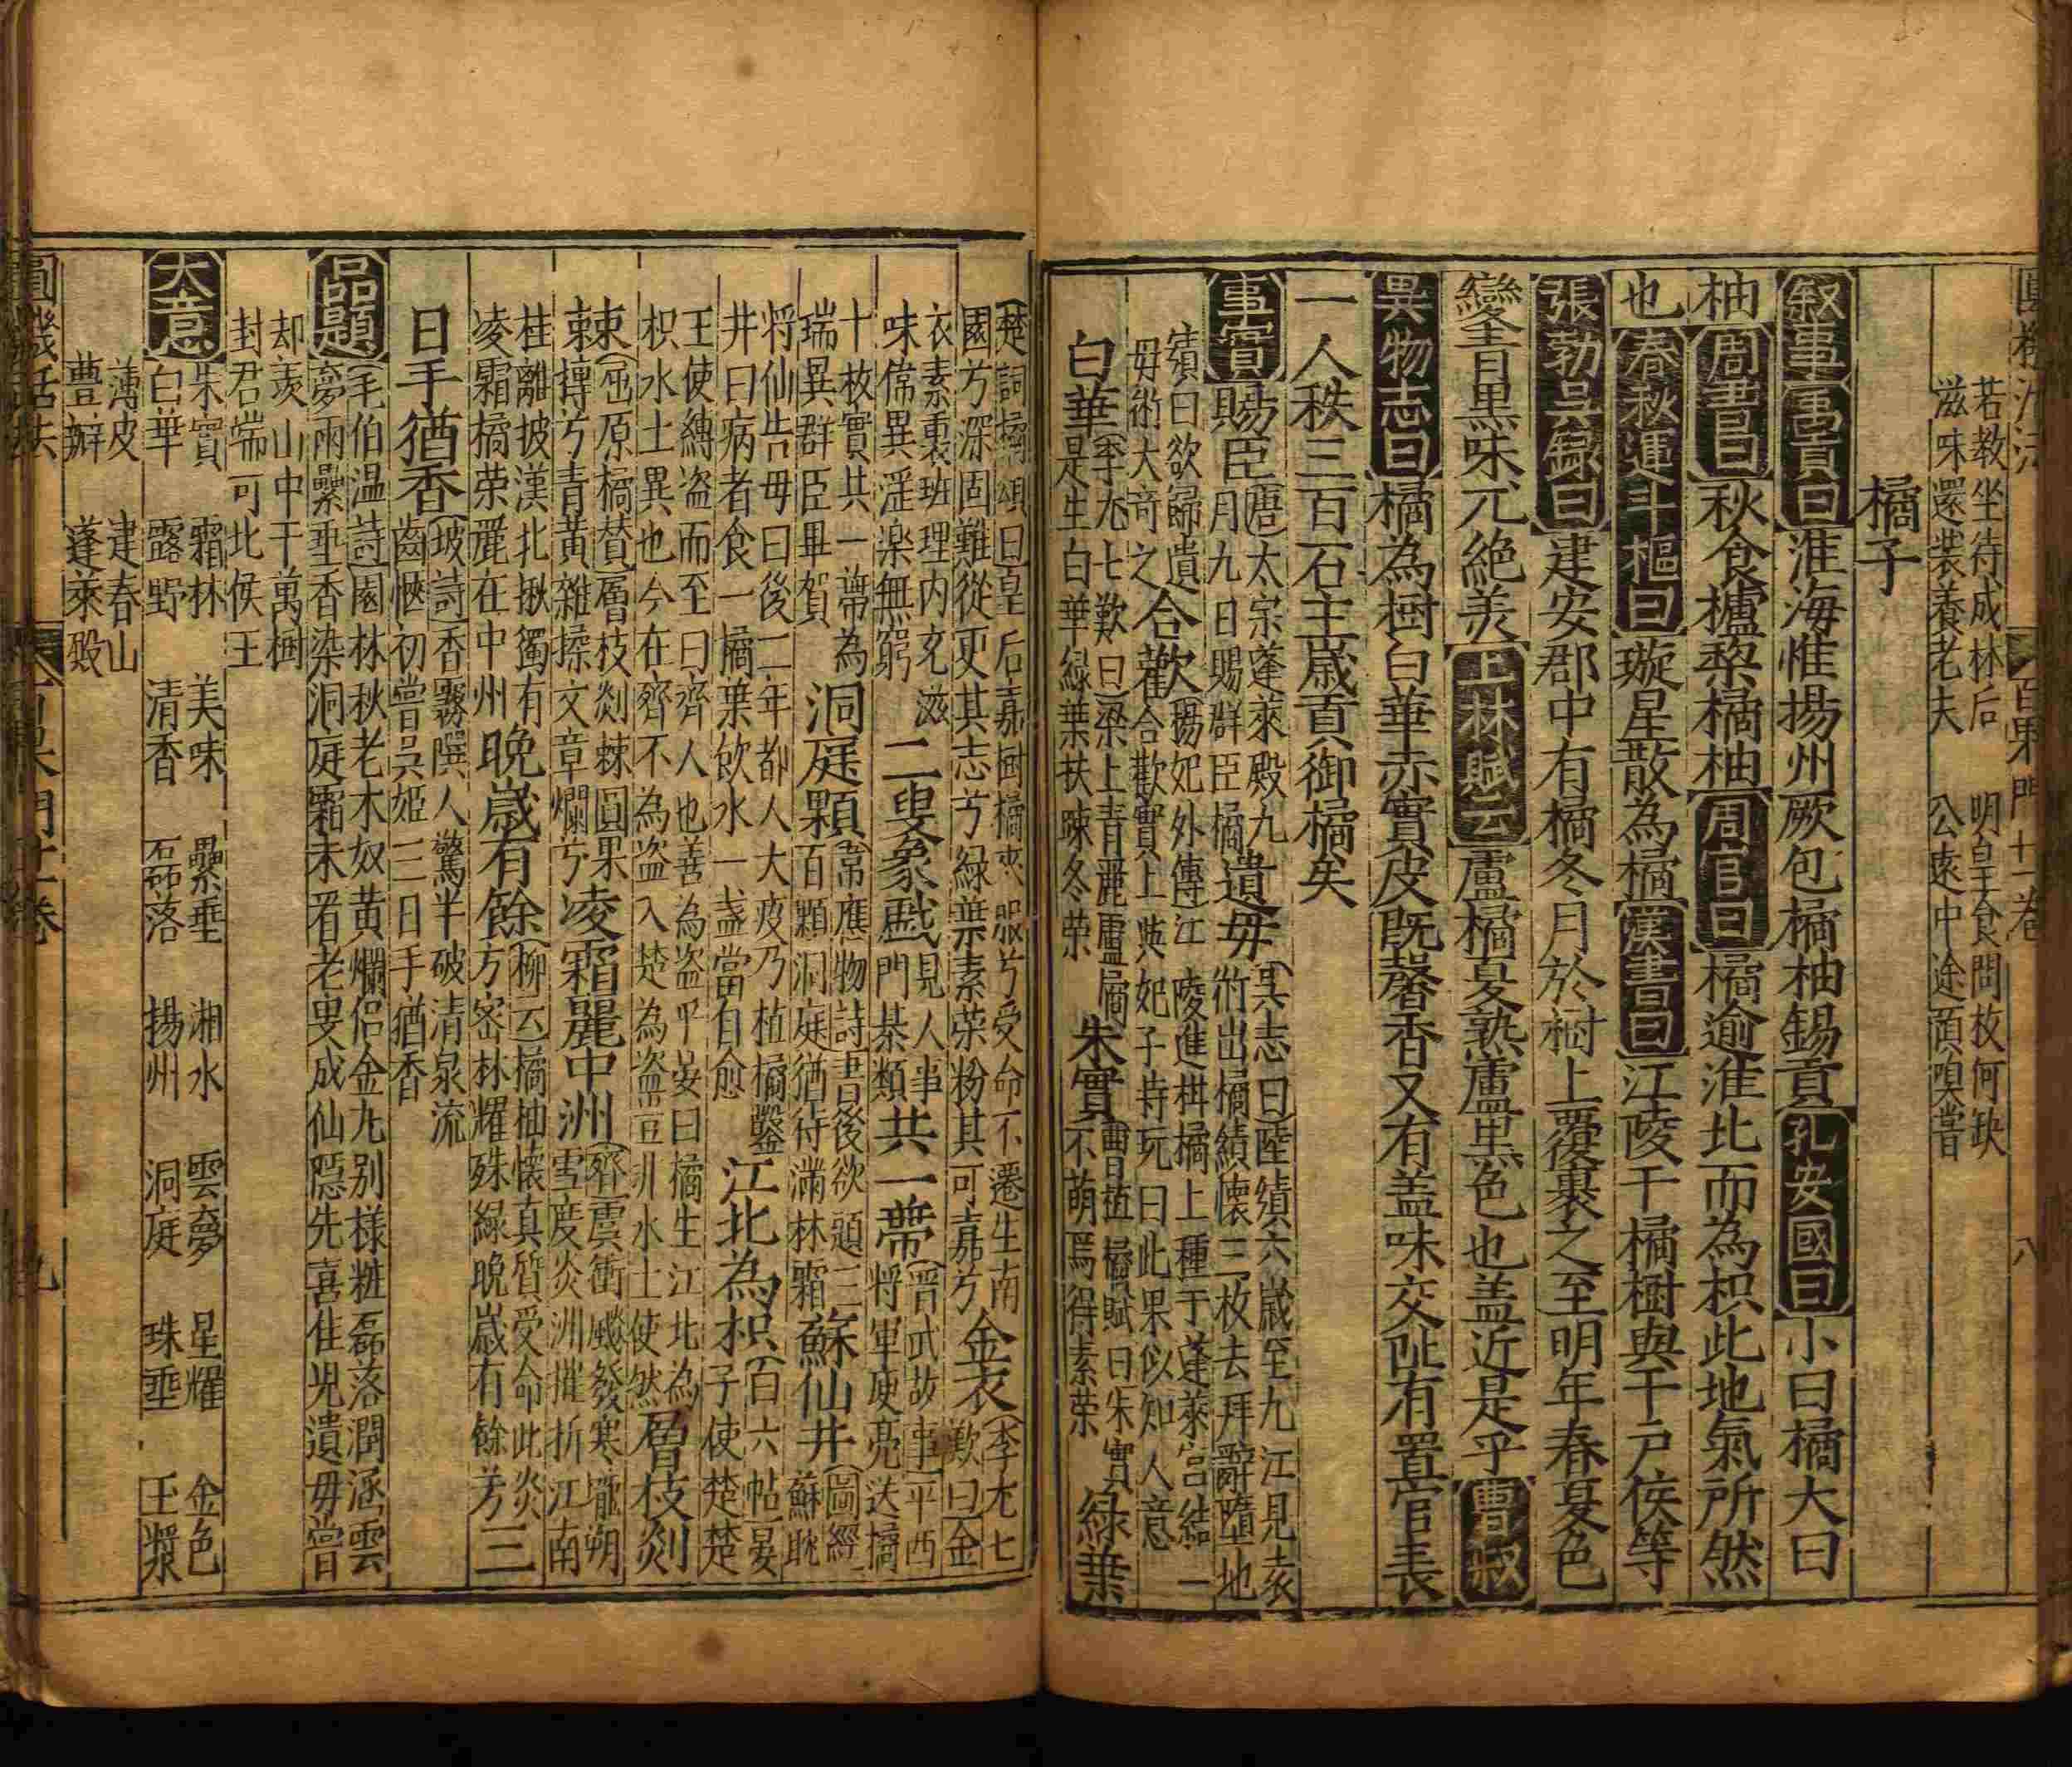 若教坐待成林后　明皇食問枚何缺
滋味還裝養老夫　公遠中途頂嗅嘗
橘子
叙事禹貢曰淮海惟揚州厥包橘柚錫貢孔安國曰小曰橘大曰
柚周書曰秋食樝棃橘柚周官曰橘逾淮北而為枳此地氣所然
也春秋運斗樞曰璇星散為橘漢書曰江陵千橘樹與千户侯等
張勃吳録曰建安郡中有橘冬月於樹上覆裹之至明年春夏色
變青黒味尤絶美上林賦云盧橘夏熟盧黒色也盖近是乎曹叔
異物志曰橘為樹白華赤實皮既馨香又有盖味交阯有置官長
一人秩三百石主歲貢御橘矣
事實賜臣唐太宗蓬萊殿九
月九日賜群臣橘遺母吳志曰陸績六歲至九江見袁
術出橘績懷三枚去拜辭墮地
績曰欲歸遺
母術大奇之合歡楊妃外傳江陵進柑橘上種于蓬萊宮結一
合歡實上與妃子持玩曰此果似知人意
白華李尤七歎曰梁上青麗盧橘
是生白華緑葉扶踈冬榮朱實曹植橘賦曰朱實
不萌焉得素榮緑葉
楚詞橘頌曰皇后嘉樹橘來服兮受命不遷生南
國兮深固難從更其志兮緑葉素榮粉其可嘉兮金衣李尤七
歎曰金
衣素裏班理内充滋
味偉異淫楽無窮二叟象戲見人事
門棊類共一蔕晋武故事平西
將軍庾亮送橘
十枚實共一蔕為
瑞異群臣畢賀洞庭顆韋應物詩書後欲題三
百顆洞庭猶待滿林霜蘇仙井圖經
蘇耽
将仙告母曰後二年都人大疫乃植橘鑿
井曰病者食一橘葉飲水一盞當自愈江北為枳百六帖晏
子使楚楚
王使縛盗而至曰齊人也善為盗乎晏曰橘生江北為
枳水土異也今在齊不為盗入楚為盗豈非水土使然層枝剡
棘屈原橘賛層枝剡棘圓果
摶兮青黃雜揉文章爛兮凌霜麗中洲齊虞衝飈發寒壠朔
雪度炎洲摧折江南
桂離披漢北楸獨有
凌霜橘荣麗在中州晚歲有餘柳云橘柚懷真質受命此炎
方密林耀殊緑晚歲有餘芳三
日手猶香坡詩香霧噀人驚半破清泉流
齒愜初嘗吳姬三日手猶香
品題毛伯温詩園林秋老木奴黃爛侣金丸别様粧磊落潤涵雲
夢雨纍垂香染洞庭霜未看老叟成仙隱先喜佳児遺母嘗
却羨山中千萬樹
封君端可北侯王
大意朱實　霜林　美味　纍垂　湘水　雲夢　星耀　金色
白華　露野　清香　磊落　揚州　洞庭　珠垂　玉漿
薄皮　建春山
豊瓣　蓬萊殿
百果門十一卷　八